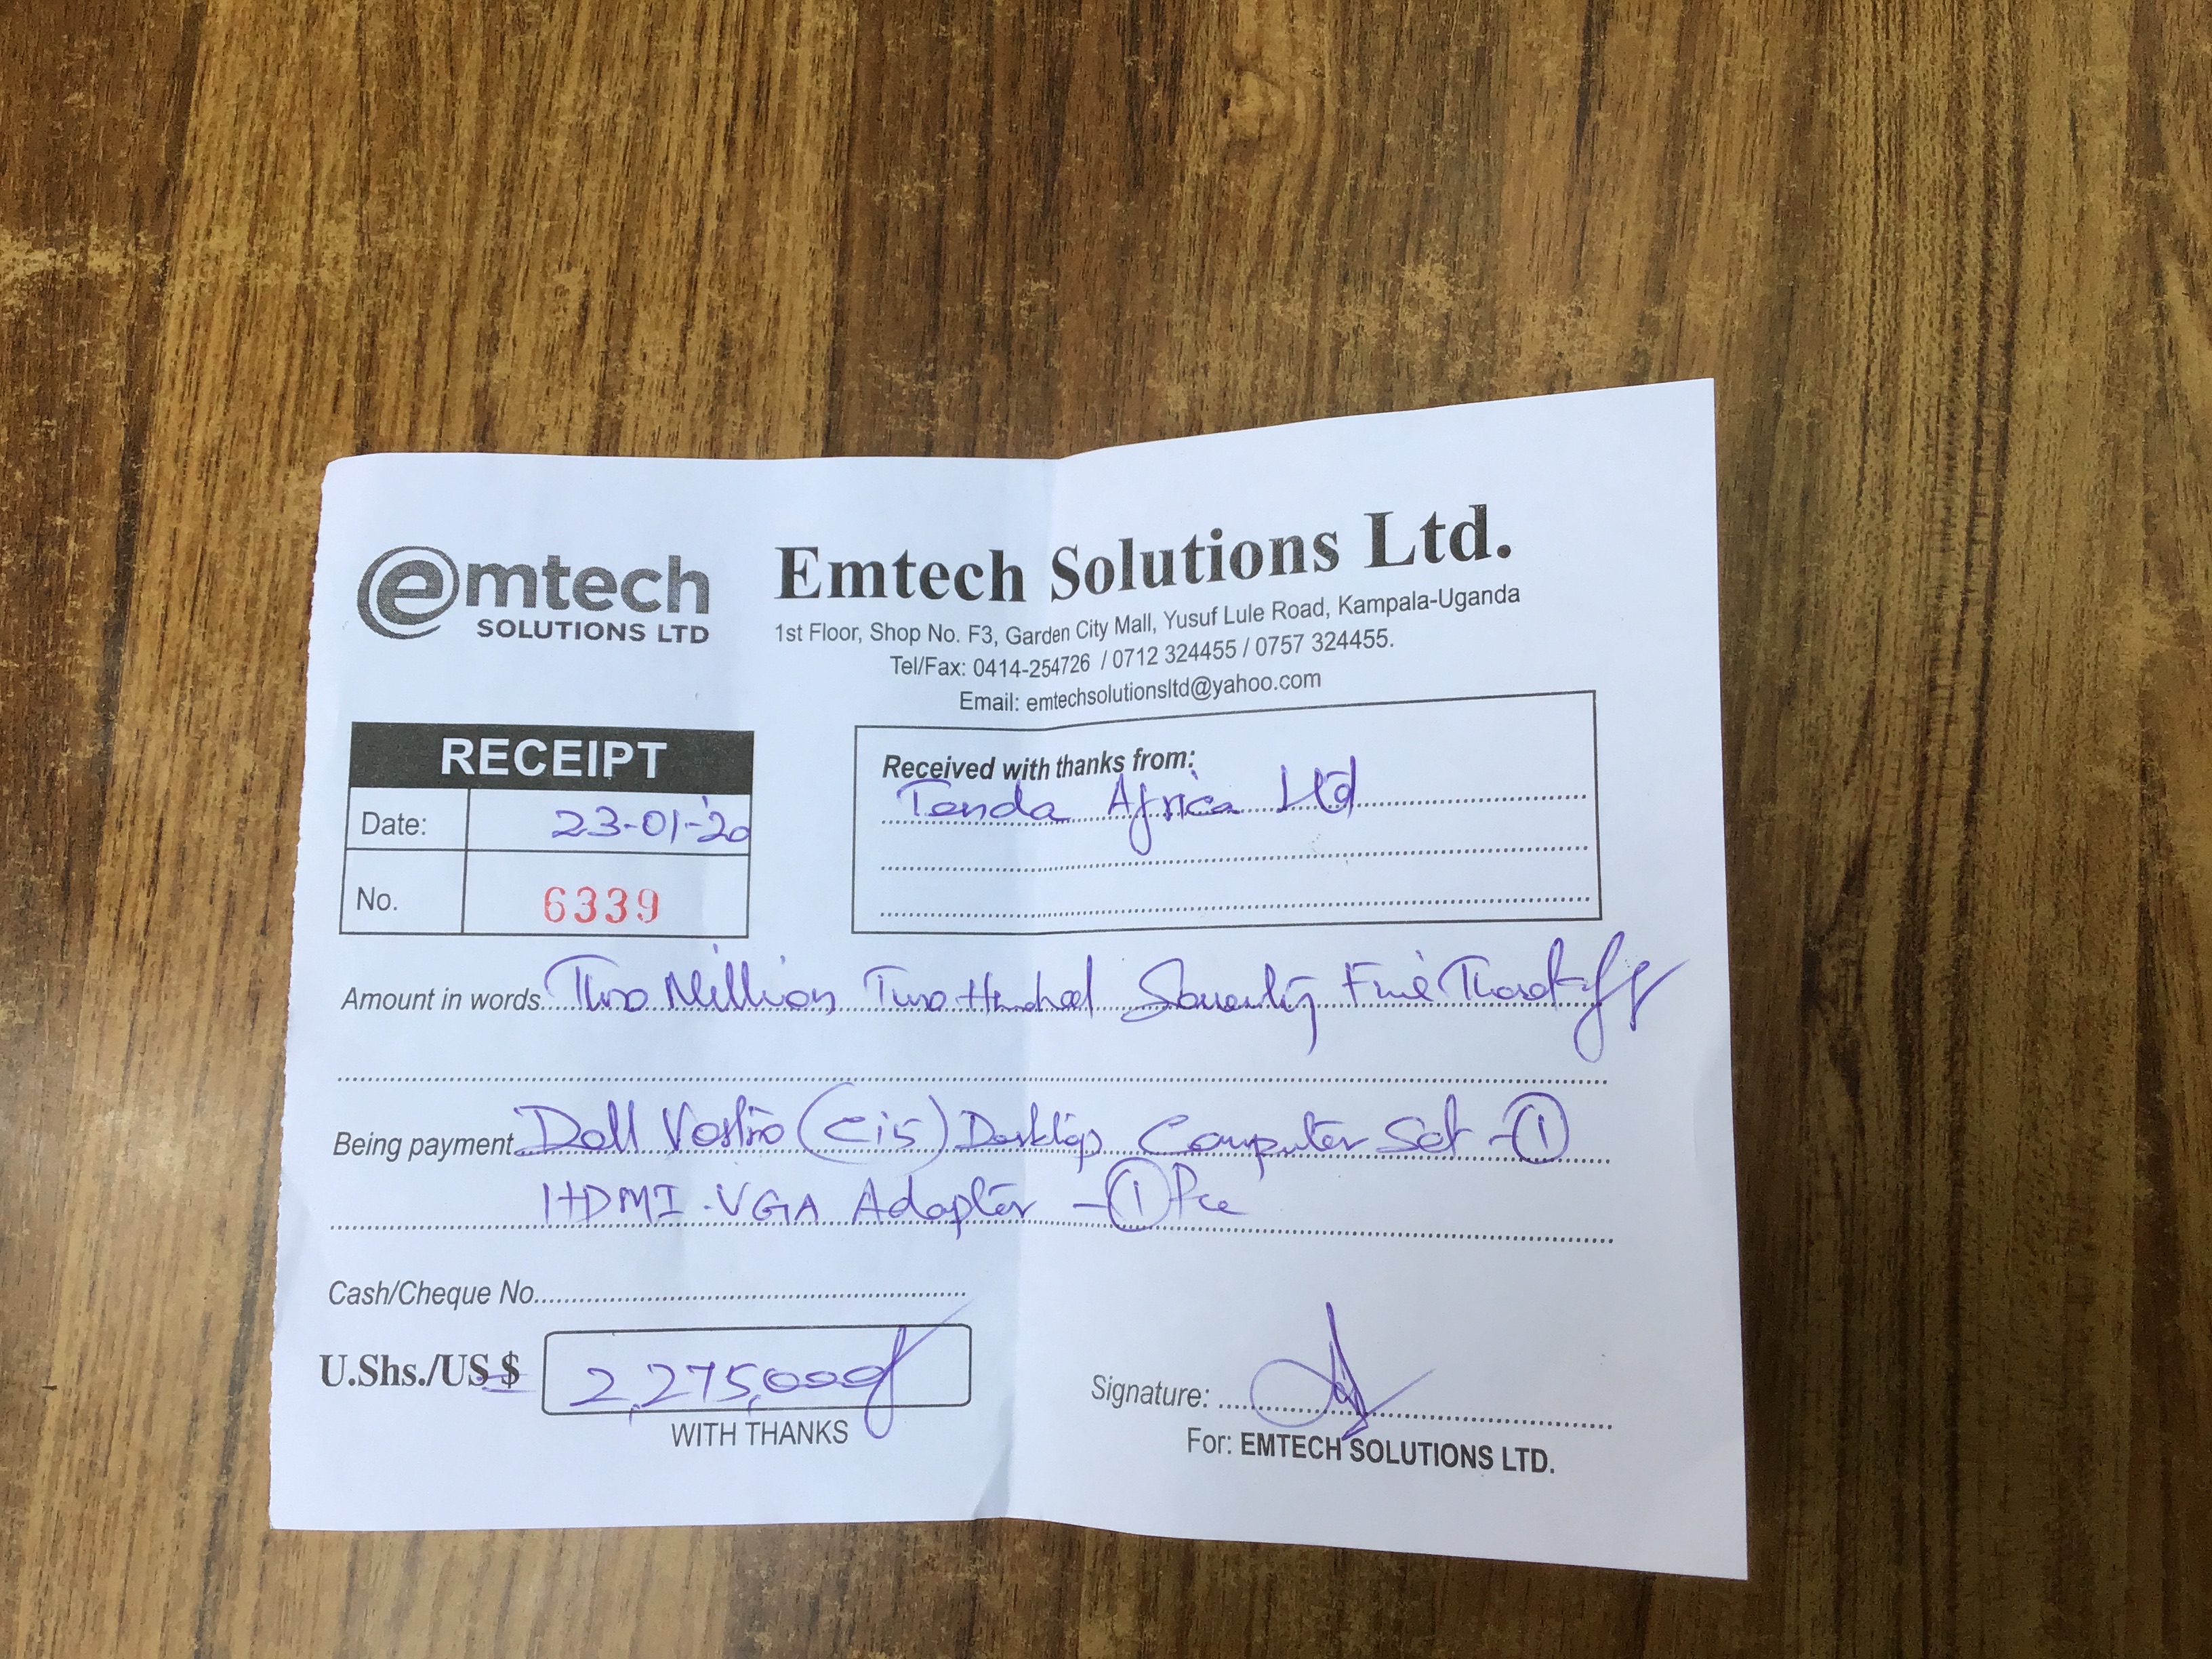 emtech
SOLUTIONS LTD
Emtech Solutions Ltd.
1st Floor, Shop No. F3, Garden City Mall, Yusuf Lule Road, Kampala-Uganda
Tel/Fax: 0414-254726 / 0712 324455 / 0757 324455.
Email: emtechsolutionsltd@yahoo.com
RECEIPT
Date: 23-01-20
No. 6339
Received with thanks from:
Tenda Africa Ltd
Amount in words Two Million Two Hundred Seventy Five
Being payment Dell Vostro (Ci5) Desktop Computer Set - 1
HDMI-VGA Adapter - 1 Pce
Cash/Cheque No.
U.Shs./US $ 2,275,000
WITH THANKS
Signature:
For: EMTECH SOLUTIONS LTD.